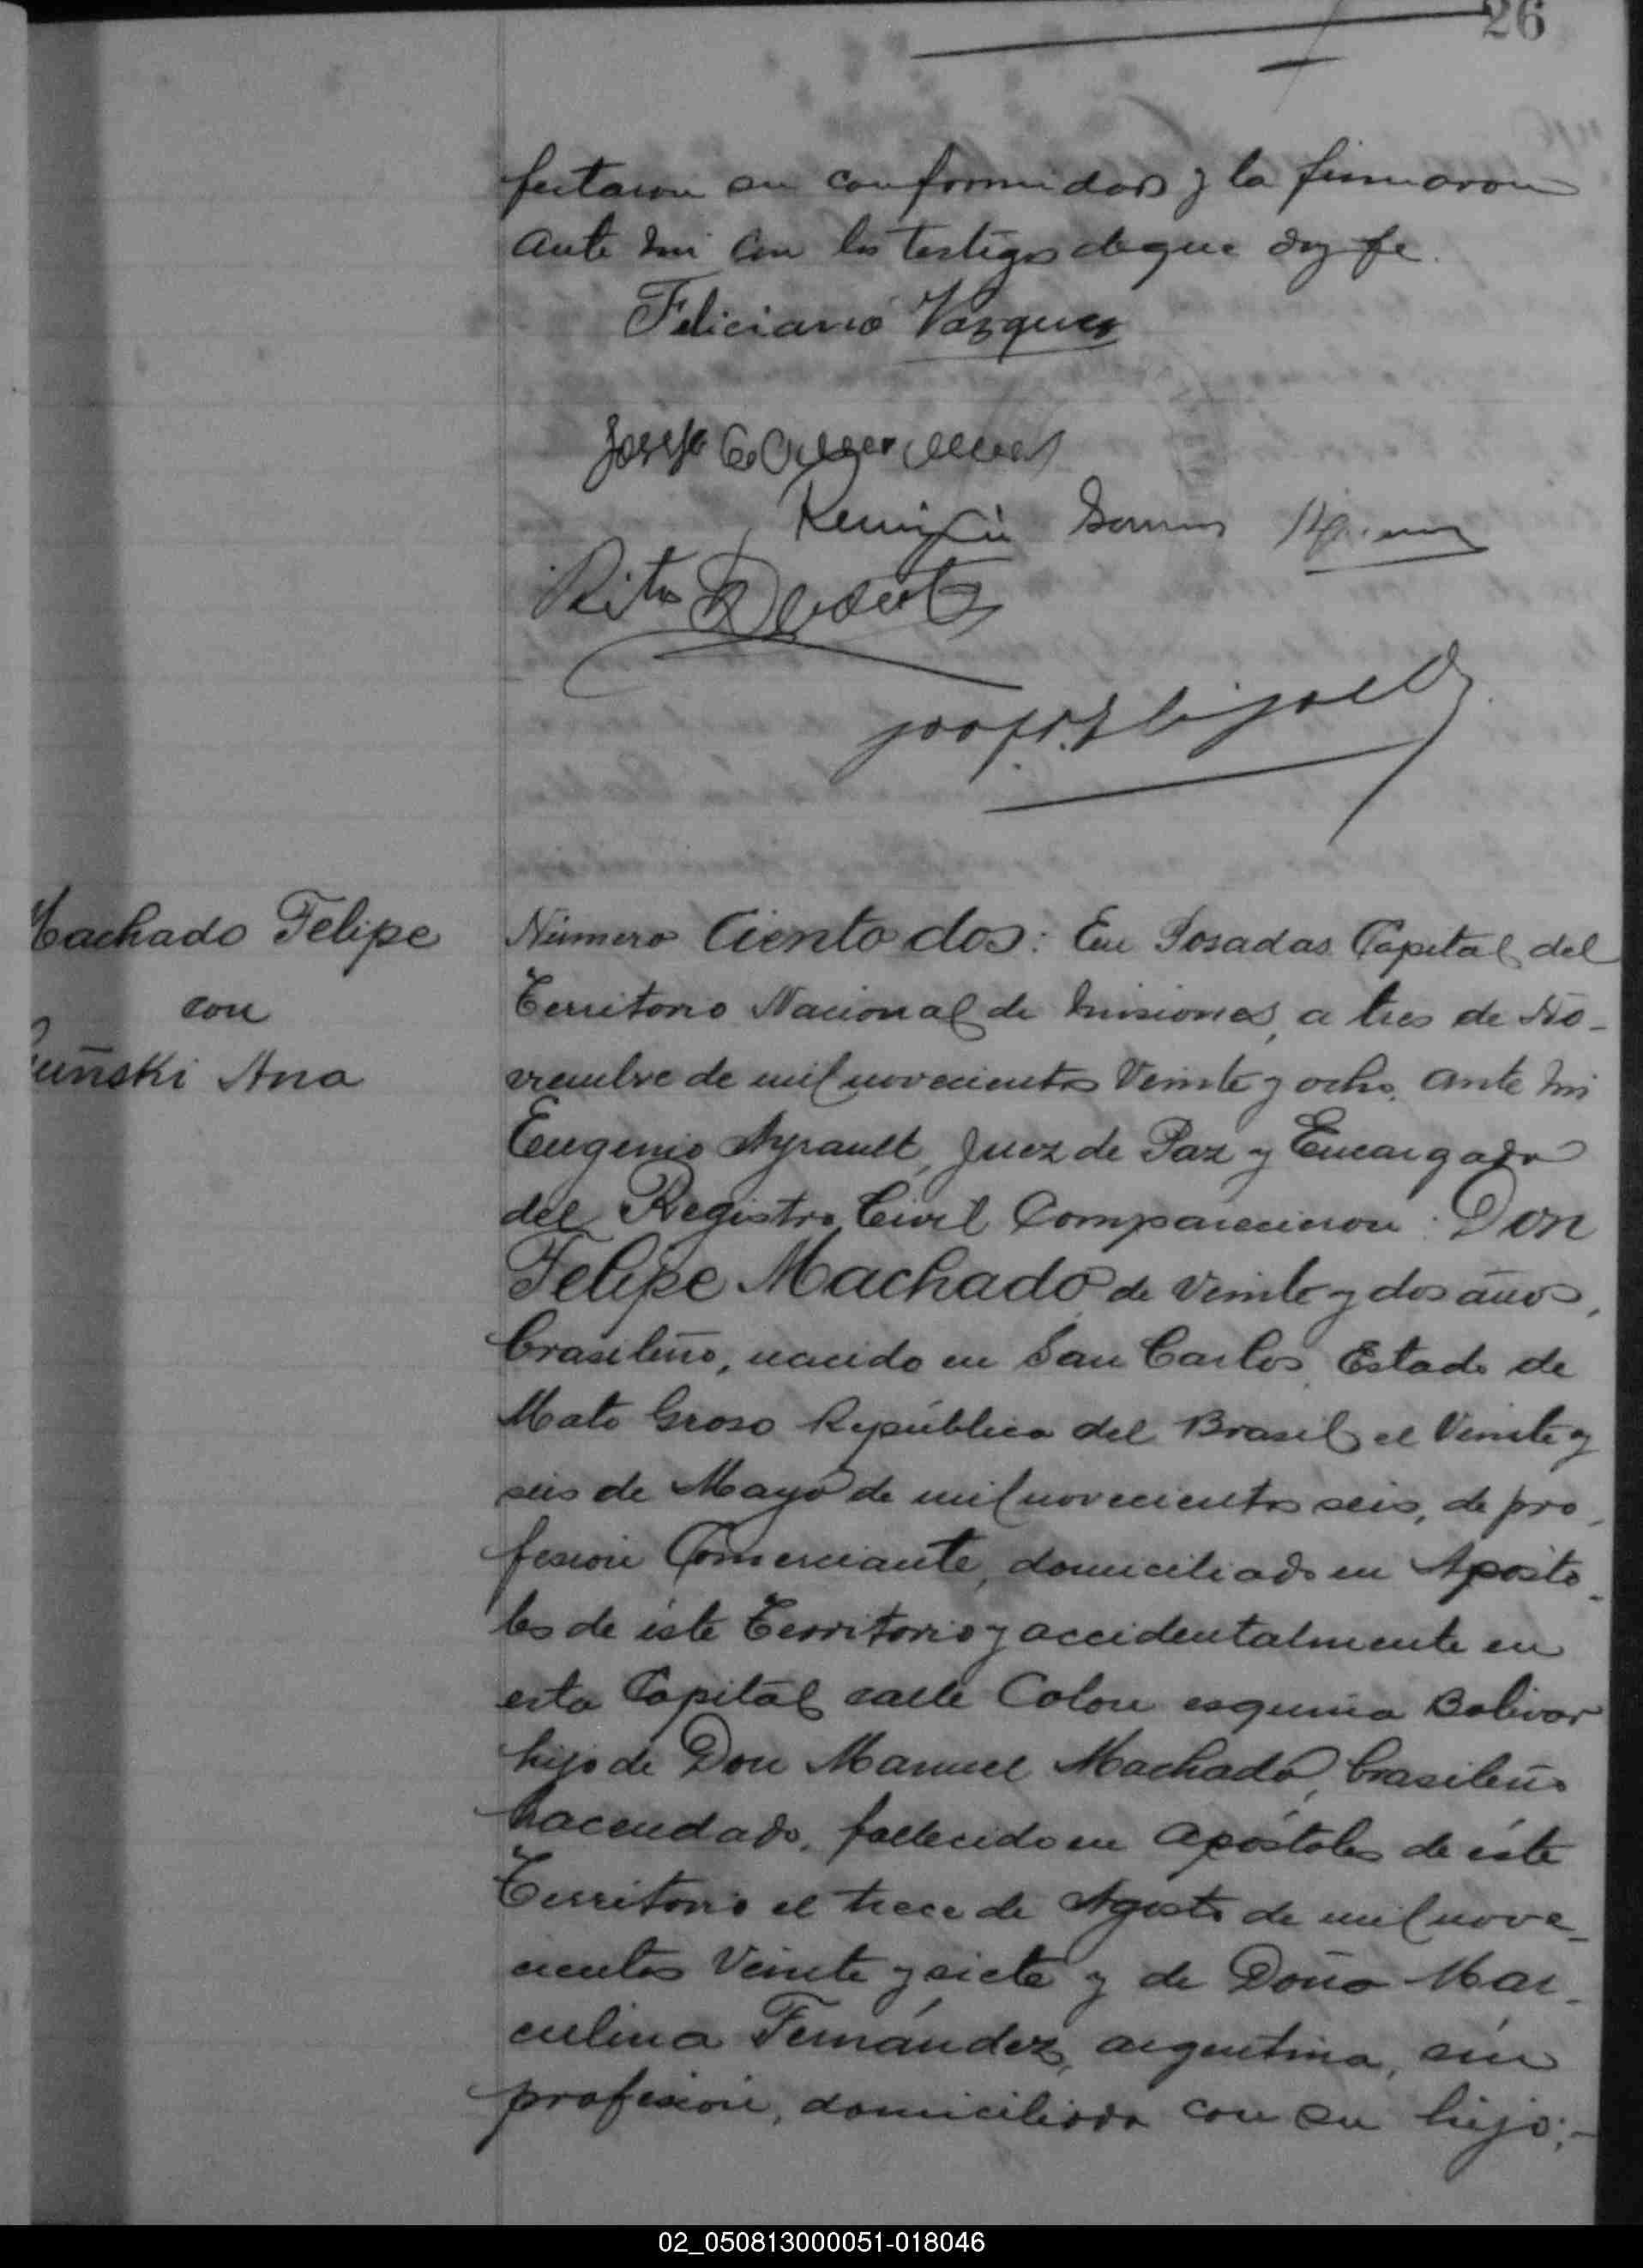 26
festaron su conformidad y la firmaron
ante mi con los testigos de que doy fe.
Feliciano Vazquez
Remigio
Rito
Machado Felipe
con
uñski Ana
Número Ciento dos: En Posadas Capital del
Territorio Nacional de Misiones, a tres de No-
viembre de mil novecientos Veinte y ocho, ante mi
Eugenio Ayrault, Juez de Paz y Encargado
del Registro Civil Comparecieron: Don
Felipe Machado de Veinte y dos años,
brasileño, nacido en San Carlos, Estado de
Mato Groso República del Brasil el Veinte y
seis de Mayo de mil novecientos seis, de pro-
fesion Comerciante, domiciliado en Apósto-
les de éste Territorio y accidentalmente en
esta Capital calle Colon esquina Bolivar
hijo de Don Manuel Machado, brasileño
hacendado, fallecido en Apóstoles de éste
Territorio el trece de Agosto de mil nove-
cientos Veinte y siete y de Doña Mar-
culina Fernández, argentina, sin
profesión, domiciliada con su hijo;-
02_050813000051-018046